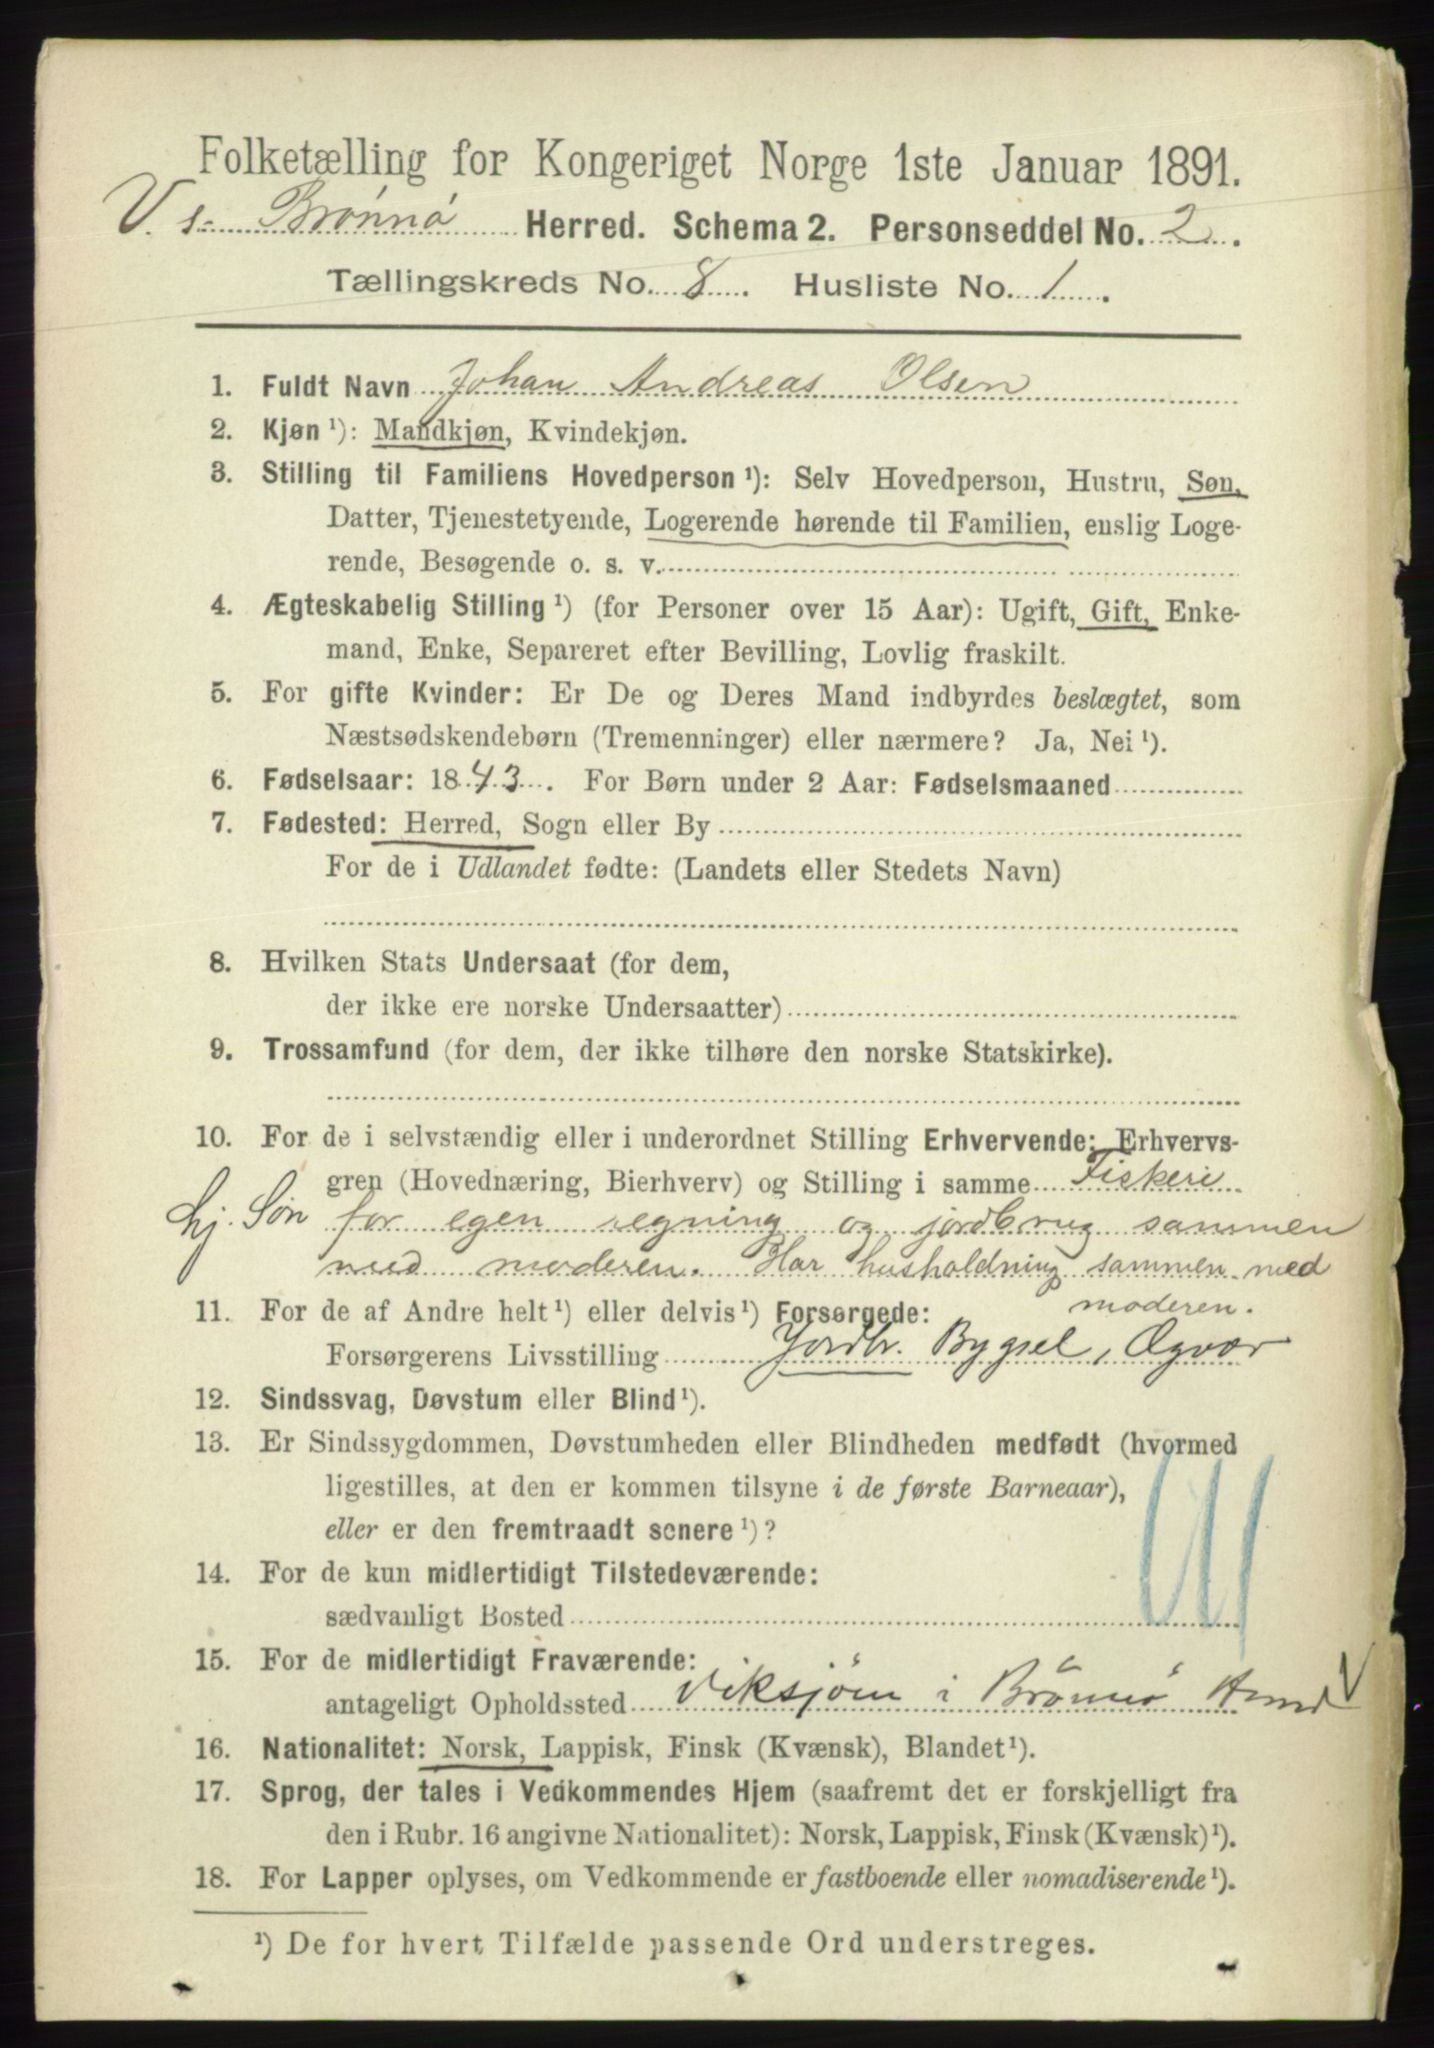 Folketælling for Kongeriget Norge 1ste Januar 1891.
V. s. Brønnø Herred. Schema 2. Personseddel No. 2.
Tællingskreds No. 8. Husliste No. 1.
1. Fuldt Navn Johan Andreas Olsen
2. Kjøn ¹): Mandkjøn, Kvindekjøn.
3. Stilling til Familiens Hovedperson ¹): Selv Hovedperson, Hustru, Søn,
Datter, Tjenestetyende, Logerende hørende til Familien, enslig Loge-
rende, Besøgende o. s. v.
4. Ægteskabelig Stilling ¹) (for Personer over 15 Aar): Ugift, Gift, Enke-
mand, Enke, Separeret efter Bevilling, Lovlig fraskilt.
5. For gifte Kvinder: Er De og Deres Mand indbyrdes beslægtet, som
Næstsødskendebørn (Tremenninger) eller nærmere? Ja, Nei ¹).
6. Fødselsaar: 1843. For Børn under 2 Aar: Fødselsmaaned
7. Fødested: Herred, Sogn eller By
For de i Udlandet fødte: (Landets eller Stedets Navn)
8. Hvilken Stats Undersaat (for dem,
der ikke ere norske Undersaatter)
9. Trossamfund (for dem, der ikke tilhøre den norske Statskirke).
10. For de i selvstændig eller i underordnet Stilling Erhvervende: Erhvervs-
gren (Hovednæring, Bierhverv) og Stilling i samme Fiskeri
hj. Søn for egen regning og jordbrug sammen
med moderen. Har husholdning sammen med
moderen.
11. For de af Andre helt ¹) eller delvis ¹) Forsørgede:
Forsørgerens Livsstilling Jordbr. Bygsel, Ægvær
12. Sindssvag, Døvstum eller Blind ¹).
13. Er Sindssygdommen, Døvstumheden eller Blindheden medfødt (hvormed
ligestilles, at den er kommen tilsyne i de første Barneaar),
eller er den fremtraadt senere ¹)?
14. For de kun midlertidigt Tilstedeværende:
sædvanligt Bosted
15. For de midlertidigt Fraværende:
antageligt Opholdssted Viksjøen i Brönnö
16. Nationalitet: Norsk, Lappisk, Finsk (Kvænsk), Blandet ¹).
17. Sprog, der tales i Vedkommendes Hjem (saafremt det er forskjelligt fra
den i Rubr. 16 angivne Nationalitet): Norsk, Lappisk, Finsk (Kvænsk) ¹).
18. For Lapper oplyses, om Vedkommende er fastboende eller nomadiserende ¹).
¹) De for hvert Tilfælde passende Ord understreges.